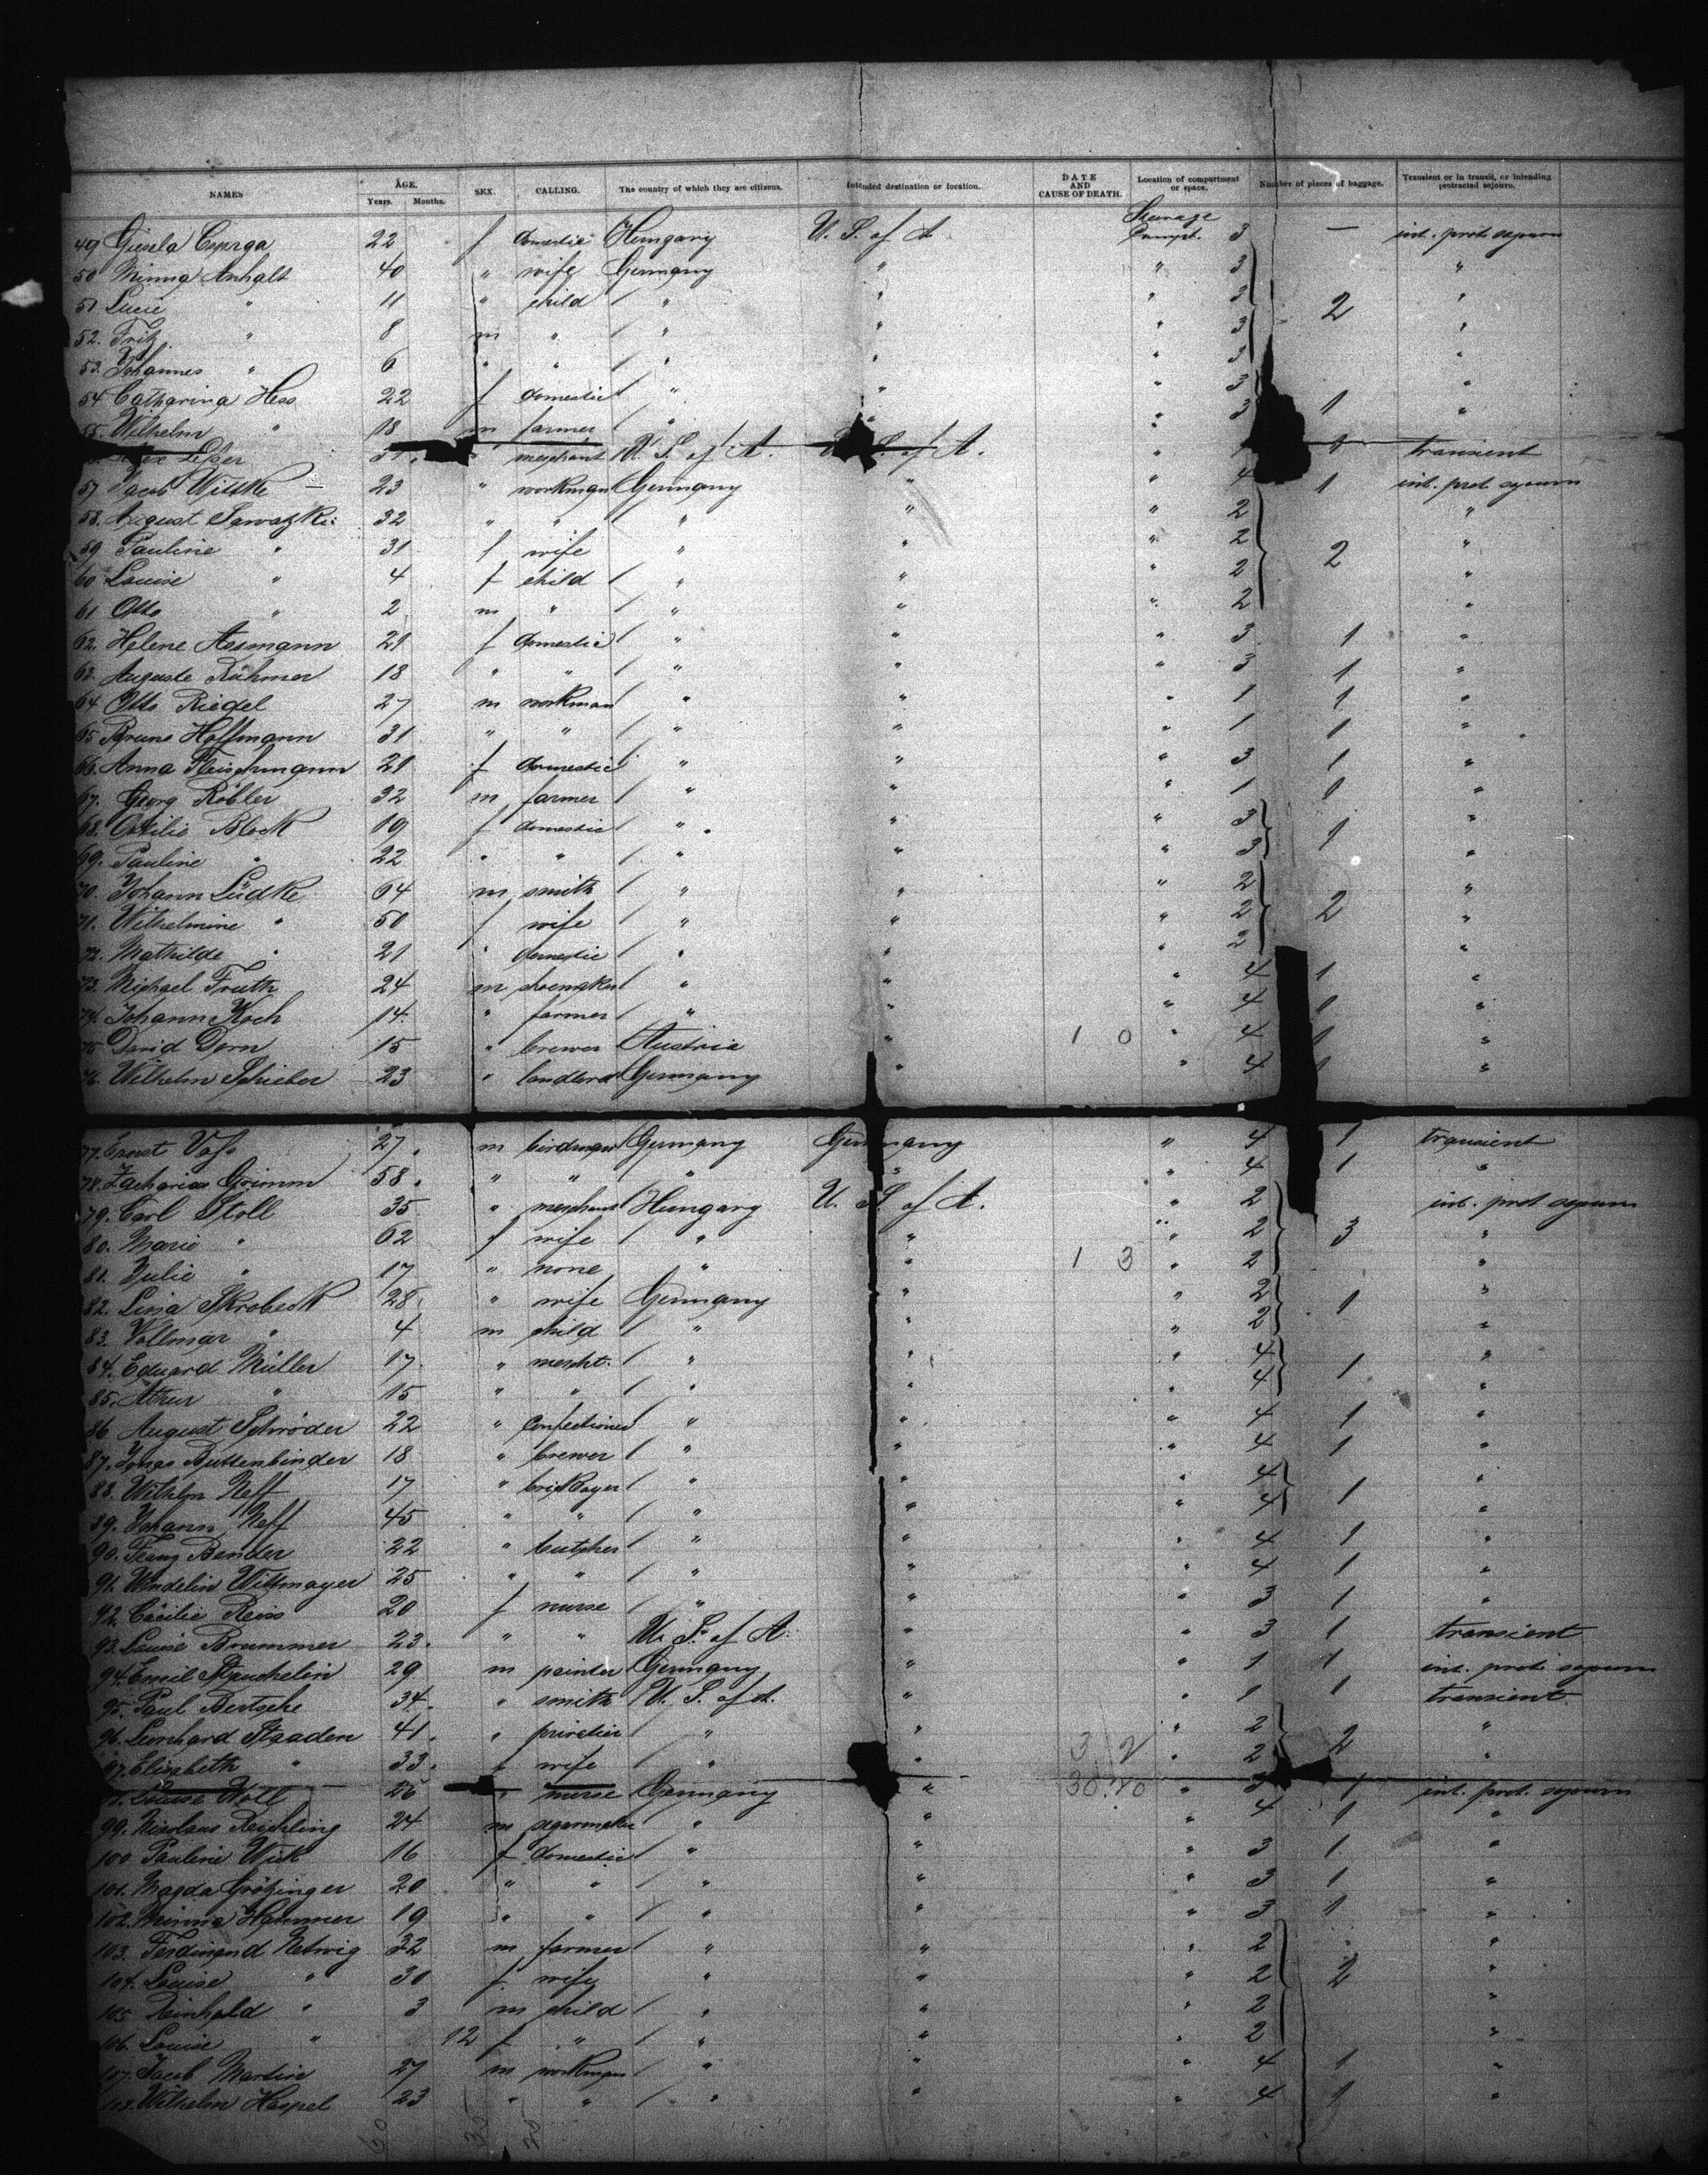 NAMES AGE. Years. Months. SEX. CALLING. The country of which they are citizens. Intended destination or location. DATE AND CAUSE OF DEATH. Location of compartment or space. Number of pieces of baggage. Transient or in transit, or intending protracted sojourn.
Steerage
49 Gisela 22 f domestic Hungary U. S. of A. Compt. 3 — int. prot. sojourn
50 Minna Anhalt 40 " wife Germany " " 3 "
51 Lucie " 11 " child " " " 3 2 "
52. Fritz " 8 m " " " " 3 "
53. Johannes " 6 " " " " " 3 "
54 Catharina Hess 22 f domestic " " " 3 1 "
55. Wilhelm " 18 m farmer " " " 3 "
merchant U. S. of A. U. S. of A. " 1 transient
57 Jacob Wittke — 23 " workman Germany " " 4 1 int. prot. sojourn
58. August Sawatzki 32 " " " " " 2 "
59 Pauline " 31 f wife " " " 2 2 "
60 Louise " 4 f child " " " 2 "
61 Otto " 2 m " " " " 2 "
62. Helene Assmann 21 f domestic " " " 3 1 "
63. Auguste Rühmer 18 " " " " " 3 1 "
64 Otto Riedel 27 m workman " " " 1 1 "
65 Bruno Hoffmann 31 " " " " " 1 1 "
66. Anna Fleischmann 21 f domestic " " " 3 1 "
67. Georg Röbler 32 m farmer " " " 1 1 "
68. Ottilie Block 19 f domestic " " " 3 1 "
69. Pauline " 22 " " " " " 3 "
70. Johann Lüdke 64 m smith " " " 2 "
71. Wilhelmine " 50 f wife " " " 2 2 "
72. Mathilde " 21 " domestic " " " 2 "
73. Michael Fruth 24 m shoemaker " " " 4 1 "
74. Johann Koch 14 " farmer " " " 4 1 "
75 David Dorn 15 " brewer Austria " 1 0 " 4 1 "
76. Wilhelm Schieber 23 " landlord Germany " " 4 1 "
77. Ernst Voss 27. m birdman Germany Germany " 4 1 transient
78. Zacharias Grimm 58. " " " " " 4 1 "
79. Carl Stoll 35 " merchant Hungary U. S. of A. " 2 int. prot sojourn
80. Marie " 62 f wife " " " 2 3 "
81. Julie " 17 " none " " 1 3 " 2 "
82. Lina Skrobeck 28 " wife Germany " " 2 1 "
83. Vollmar " 4 m child " " " 2 "
84. Eduard Müller 17 " mercht. " " " 4 1 "
85. Athur " 15 " " " " " 4 "
86 August Schröder 22 " confectioner " " " 4 1 "
87. Jonas Büttenbinder 18 " brewer " " " 4 1 "
88. Wilhlm Neff 17 " " " " 4 1 "
89. Johann Neff 45 " " " " " 4 "
90. Franz Bender 22 " butcher " " " 4 1 "
91. Wendelin Wittmayer 25 " " " " " 4 1 "
92. Cäcilie Reiss 20 f nurse " " " 3 1 "
93. Louise Brummer 23. " " U. S. of A. " " 3 1 transient
94. Emil 29 m painter Germany " " 1 1 int. prot. sojourn
95. Paul Bertsche 34. " smith U. S. of A. " " 1 1 transient
96. Leonhard Staaden 41. " privatier " " " 2 2 "
97. Elisbeth " 33. f wife " " 3 12 " 2 "
98. Louise 26 " nurse Germany " 30.20 " 3 1 int. prot. sojourn
99. Nicolaus Reichling 24 m segarmaker " " " 4 1 "
100. Pauline Wick 16 f domestic " " " 3 1. "
101. Magda Grötzinger 20 " " " " " 3 1 "
102. Minna Hammer 19 " " " " " 3 1 "
103. Ferdinand Netwig 32 m farmer " " " 2 "
104. Louise " 30 f wife " " " 2 2 "
105 Reinhold " 3 m child " " " 2 "
106. Louise " 12 f " " " " 2 "
107. Jacob Martin 27 m workman " " " 4 1 "
108. Wilhelm Haspel 23 " " " " " 4 1 "